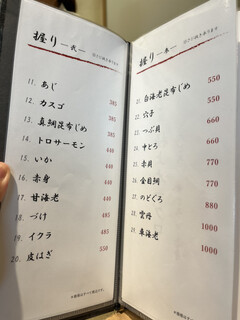 握り 一弐一
11. あじ 385
12. カスゴ 385
13. 真鯛昆布じめ 385
14. トロサーモン 440
15. いか 440
16. 赤身 440
17. 甘海老 440
18. づけ 485
19. イクラ 485
20. 皮はぎ 550
握り 一参一
21. 白海老昆布じめ 550
22. 穴子 550
23. つぶ貝 660
24. 中とろ 660
25. 赤貝 770
26. 金目鯛 770
27. のどぐろ 880
28. 雲丹 1000
29. 車海老 1000